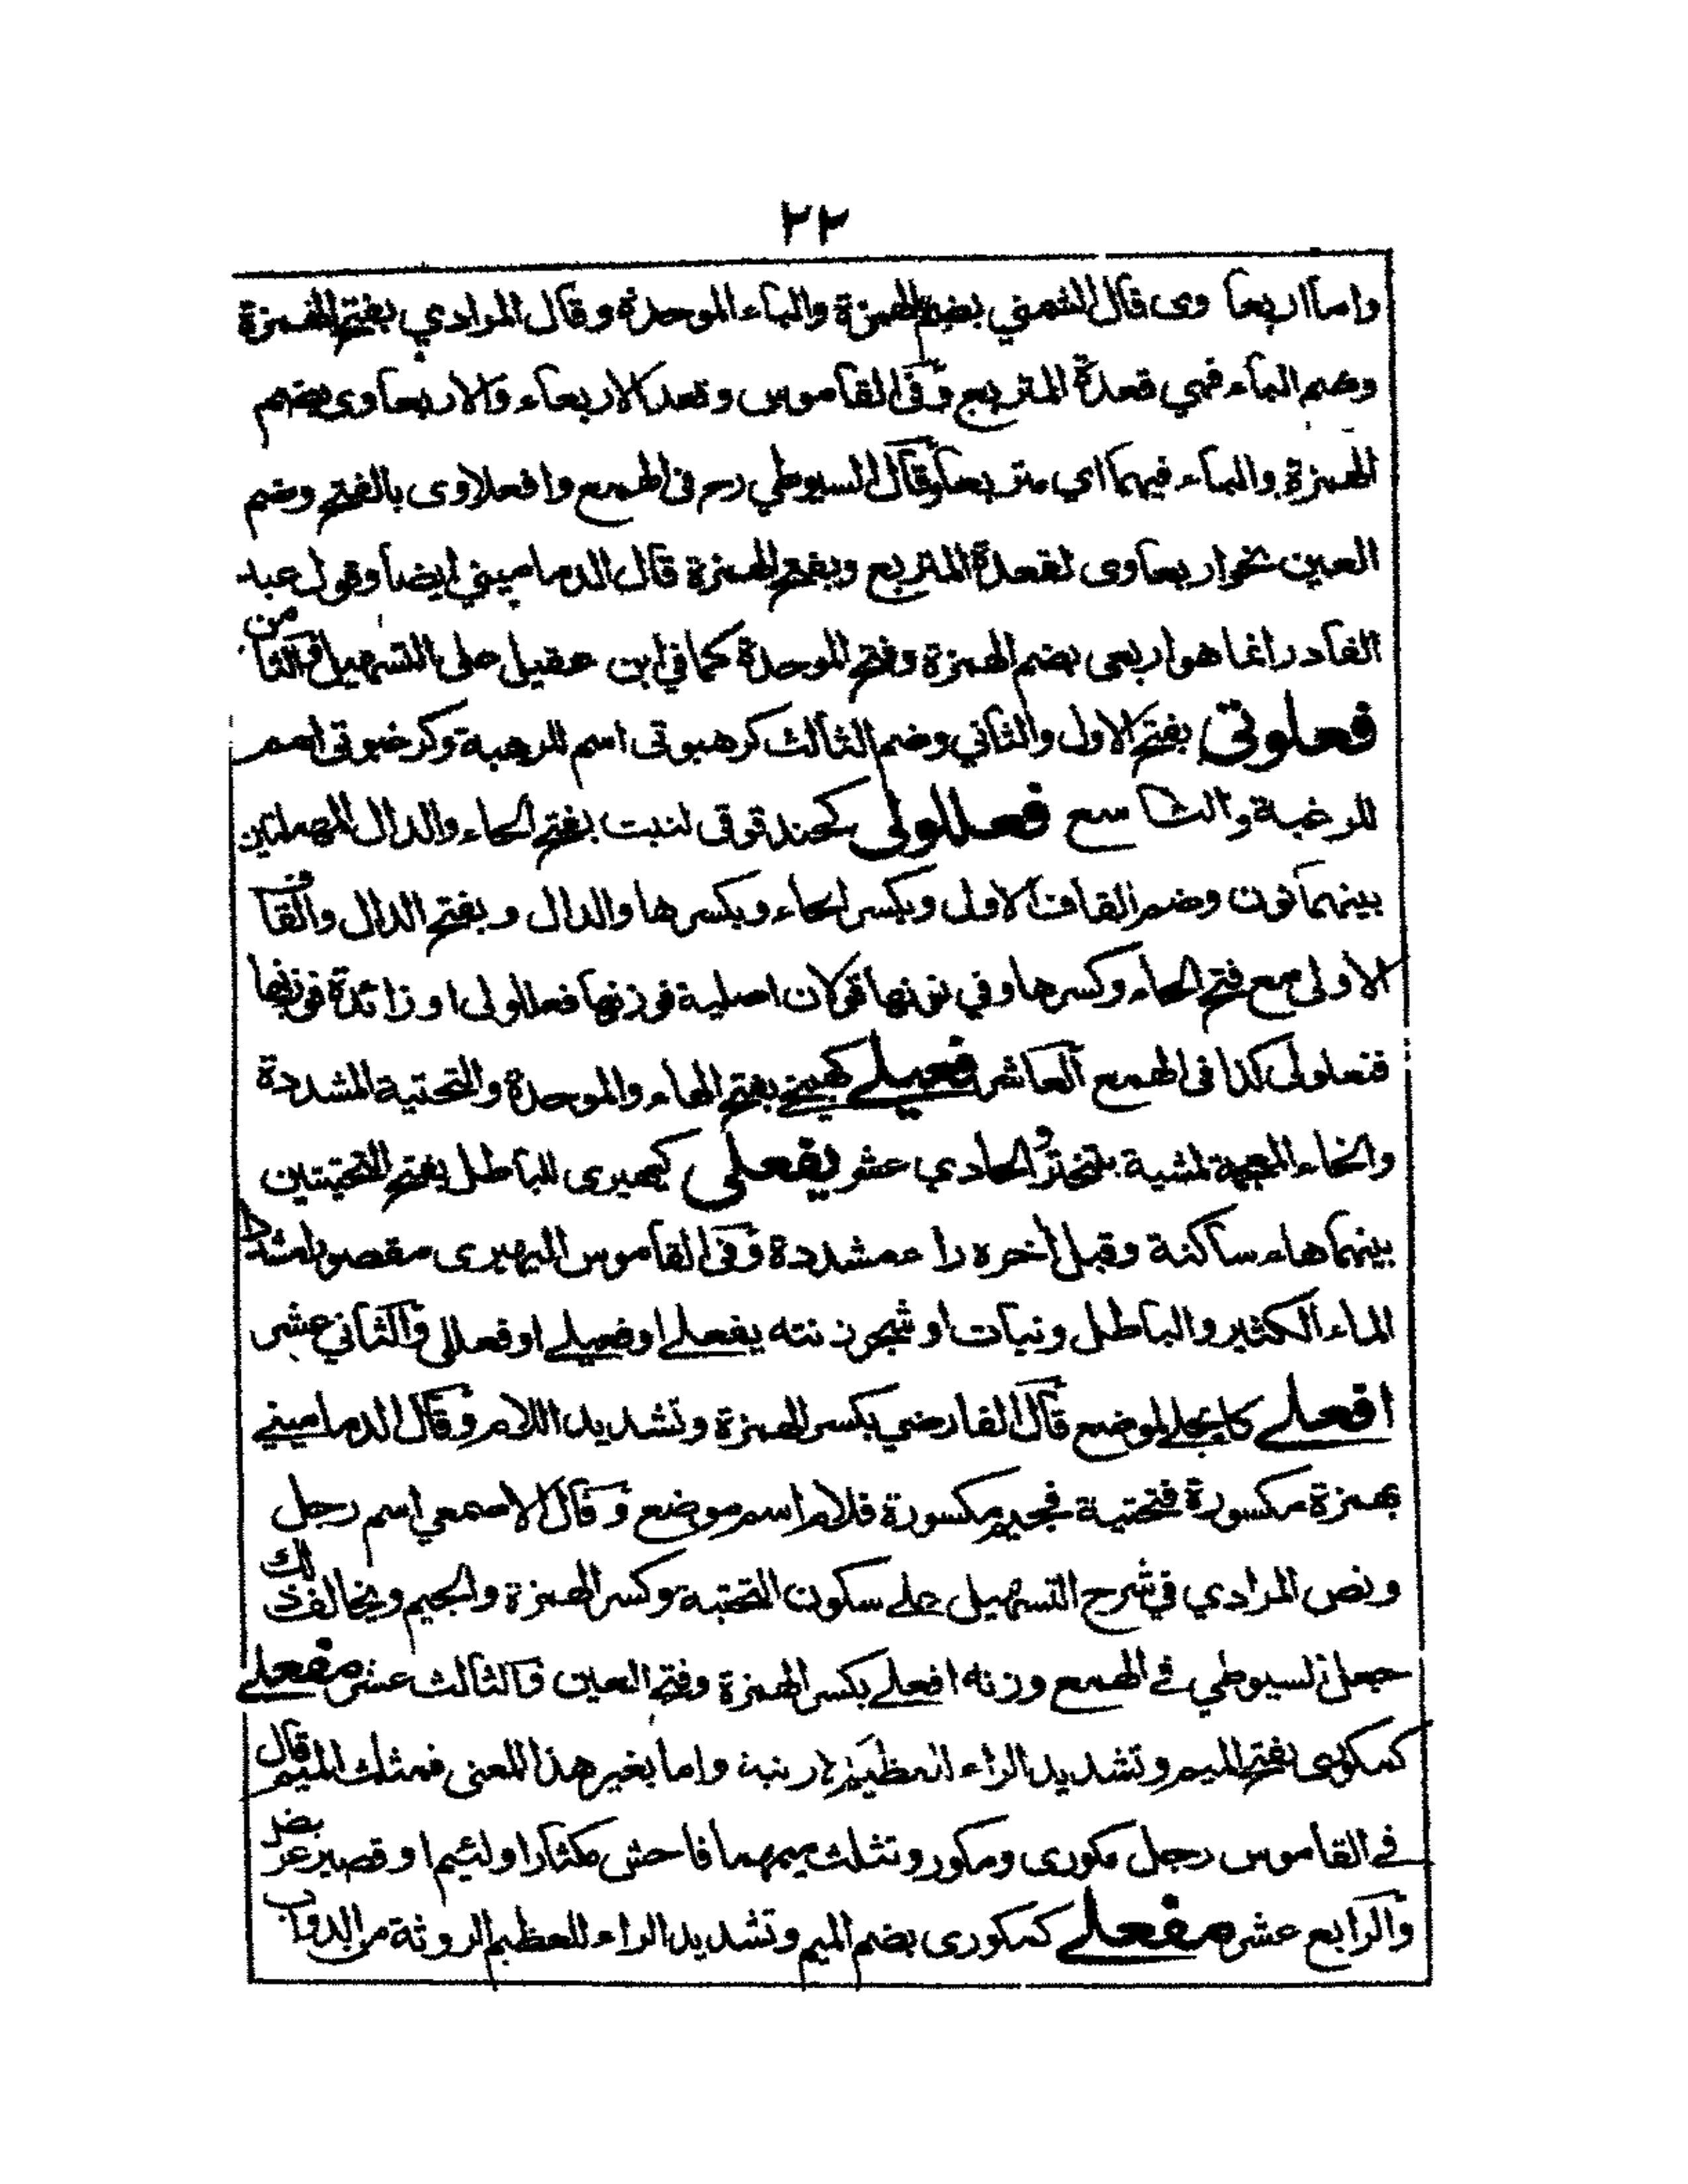 ٢٢
واما اربعا وى قال الشمني بضم الهمزة والباء الموحدة وقال المرادي بفتح الهمزة
وضم الباء فهي قعدة المتربع وفى القاموس وقعد الاربعاء والاربعاوى بضم
الهمزة والباء فيهما اي متربعا وقال السيوطي رح فى الهمع وافعلاوى بالفتح وضم
العين نحو اربعاوى لقعدة المتربع وبفتح الهمزة قال الدماميني ايضا وقول عبد
القادر انما هو اربعى بضم الهمزة وفتح الموحدة كما في ابن عقيل على التسهيل والثامن
فعلوتى بفتح الاول والثاني وضم الثالث كرهبوتى اسم للرهبة وكرغبوتى اسم
للرغبة والتاسع فعللولى كحندقوقى لنبت بفتح الحاء والدال المهملتين
بينهما نون وضم القاف الاولى وبكسر الحاء وبكسرها والدال وبفتح الدال والقاف
الاولى مع فتح الحاء وكسرها وفي نونها قولان اصلية فوزنها فعللولى او زائدة فوزنها
فنعلولى كذا فى الهمع العاشر فعيلے كهبيخے بفتح الهاء والموحدة والتحتية المشددة
والخاء المعجمة لمشية بتبختر والحادي عشر يفعلى كيهيرى للباطل بفتح التحتيتين
بينهما هاء ساكنة وقبل أخره راء مشددة وفى القاموس اليهيرى مقصورا مشددا
الماء الكثير والباطل ونبات او شجر زنته يفعلے او فعيلے او فعللى والثاني عشر
افعلے كايجلے لموضع قال الفارضي بكسر الهمزة وتشديد اللام وقال الدماميني
بهمزة مكسورة فتحتية فجيم مكسورة فلام اسم موضع وقال الاصمعي اسم رجل
ونص المرادي في شرح التسهيل علے سكون التحتية وكسر الهمزة والجيم ويخالف ذلك
جعل السيوطي فے الهمع وزنه افعلے بكسر الهمزة وفتح العين والثالث عشر مفعلے
كمكورى بفتح الميم وتشديد الراء لعظيم الارنبة واما بغير هذا المعنى فمثلث الميم قال
فے القاموس رجل مكورى ومكور وتثلث ميمهما فاحش مكثار او لئيم او قصير عريض
والرابع عشر مفعلے كمكورى بضم الميم وتشديد الراء للعظيم الروثة من الدواب